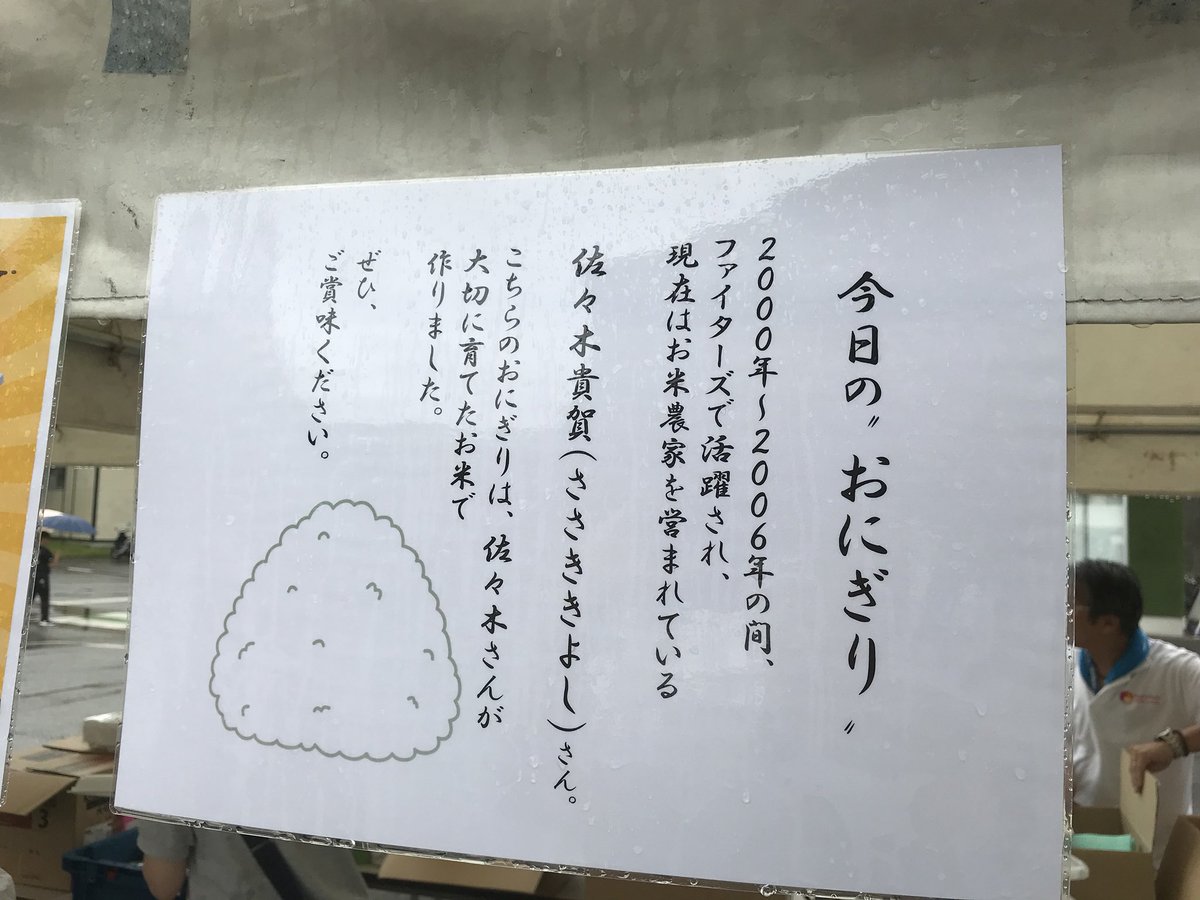 今日の〝おにぎり〟
2000年~2006年の間、
ファイターズで活躍され、
現在はお米農家を営まれている
佐々木貴賀(ささききよし)さん。
こちらのおにぎりは、佐々木さんが
大切に育てたお米で
作りました。
ぜひ、
ご賞味ください。